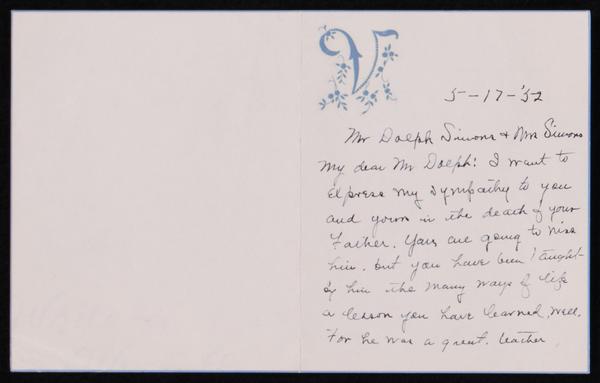 V
5-17-'52
Mr Dolph Simons & Mrs Simons
My dear Mr Dolph! I want to
express my sympathy to you
and yours in the death of your
Father. You are going to miss
him. but you have been taught
by him the many ways of life
a lesson you have learned, well.
For he was a great. teacher